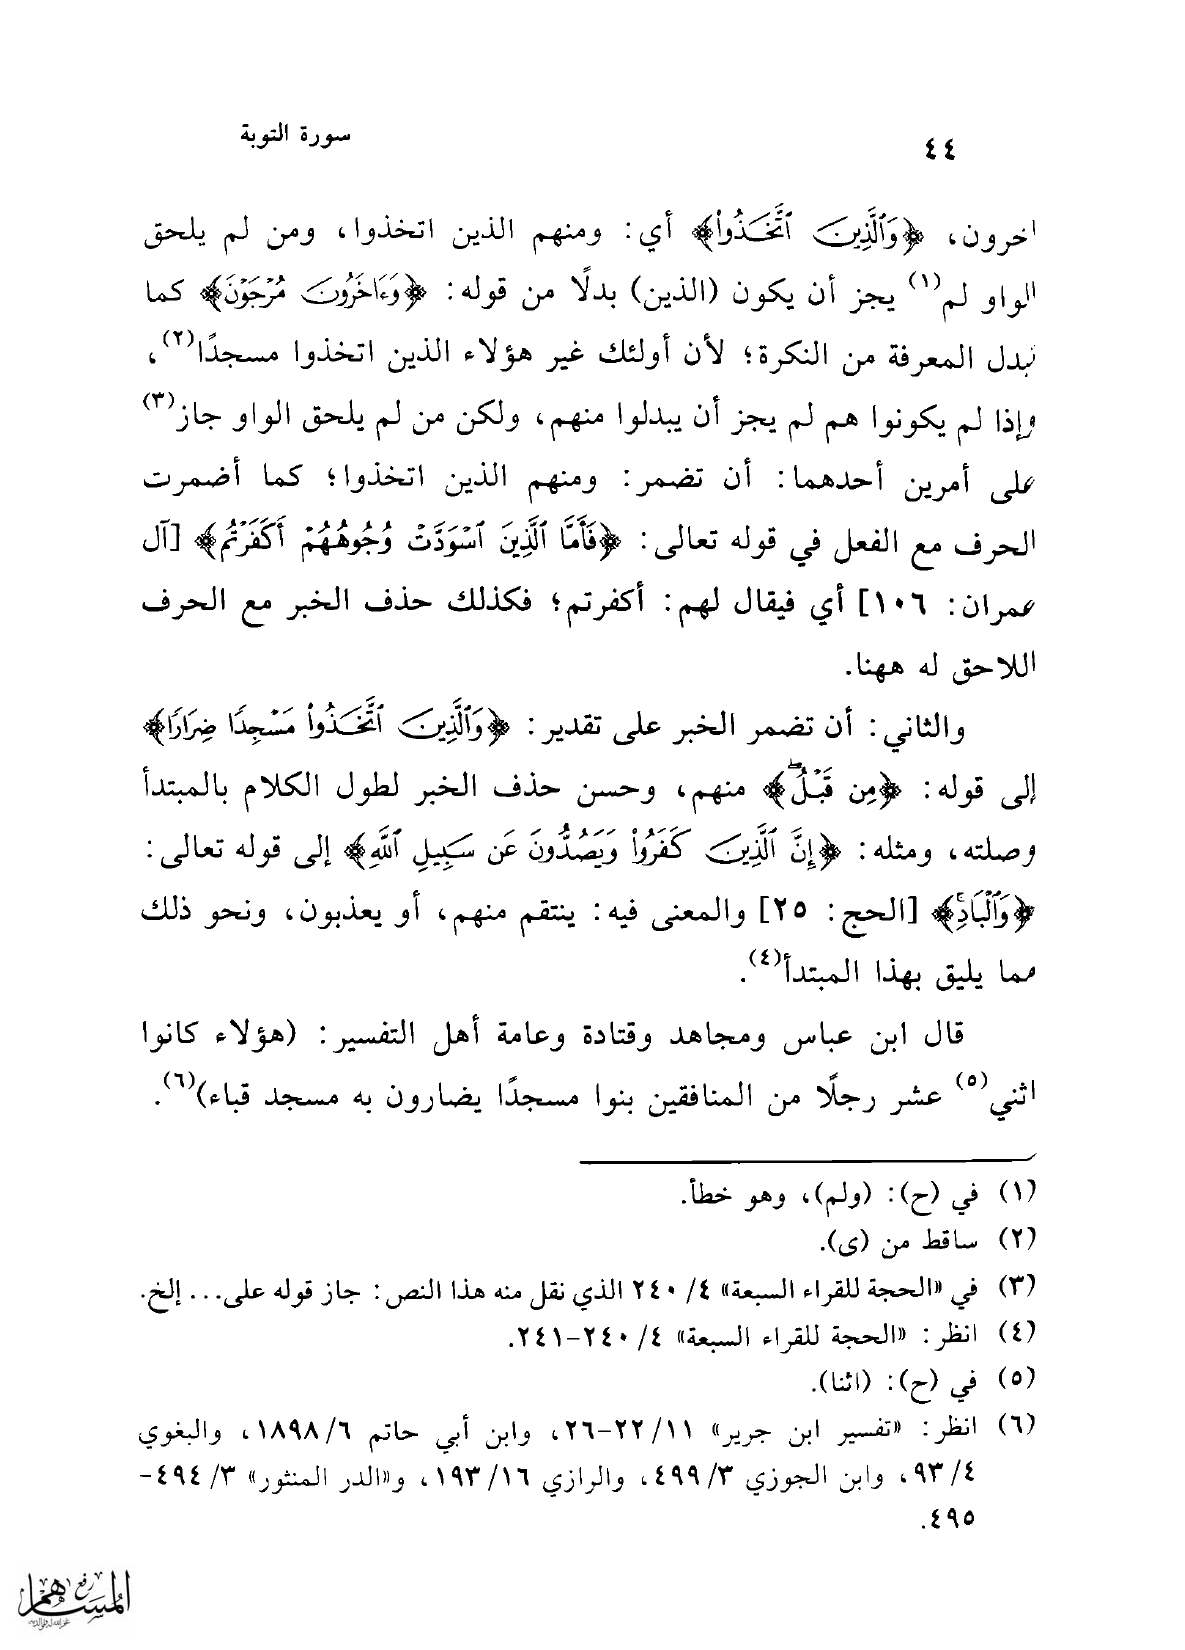 ٤٤
سورة التوبة
آخرون، ﴿وَٱلَّذِينَ ٱتَّخَذُواْ﴾ أي: ومنهم الذين اتخذوا، ومن لم يلحق
الواو لم(١) يجز أن يكون (الذين) بدلًا من قوله: ﴿وَءَاخَرُونَ مُرۡجَوۡنَ﴾ كما
تبدل المعرفة من النكرة؛ لأن أولئك غير هؤلاء الذين اتخذوا مسجدًا(٢)،
وإذا لم يكونوا هم لم يجز أن يبدلوا منهم، ولكن من لم يلحق الواو جاز(٣)
على أمرين أحدهما: أن تضمر: ومنهم الذين اتخذوا؛ كما أضمرت
الحرف مع الفعل في قوله تعالى: ﴿فَأَمَّا ٱلَّذِينَ ٱسۡوَدَّتۡ وُجُوهُهُمۡ أَكَفَرۡتُم﴾ [آل
عمران: ١٠٦] أي فيقال لهم: أكفرتم؛ فكذلك حذف الخبر مع الحرف
اللاحق له ههنا.
والثاني: أن تضمر الخبر على تقدير: ﴿وَٱلَّذِينَ ٱتَّخَذُواْ مَسۡجِدٗا ضِرَارٗا﴾
إلى قوله: ﴿مِن قَبۡلُۚ﴾ منهم، وحسن حذف الخبر لطول الكلام بالمبتدأ
وصلته، ومثله: ﴿إِنَّ ٱلَّذِينَ كَفَرُواْ وَيَصُدُّونَ عَن سَبِيلِ ٱللَّهِ﴾ إلى قوله تعالى:
﴿وَٱلۡبَادِۚ﴾ [الحج: ٢٥] والمعنى فيه: ينتقم منهم، أو يعذبون، ونحو ذلك
مما يليق بهذا المبتدأ(٤).
قال ابن عباس ومجاهد وقتادة وعامة أهل التفسير: (هؤلاء كانوا
اثني(٥) عشر رجلًا من المنافقين بنوا مسجدًا يضارون به مسجد قباء)(٦).
(١) في (ح): (ولم)، وهو خطأ.
(٢) ساقط من (ى).
(٣) في «الحجة للقراء السبعة» ٤/ ٢٤٠ الذي نقل منه هذا النص: جاز قوله على... إلخ.
(٤) انظر: «الحجة للقراء السبعة» ٤/ ٢٤٠-٢٤١.
(٥) في (ح): (اثنا).
(٦) انظر: «تفسير ابن جرير» ١١/ ٢٢-٢٦، وابن أبي حاتم ٦/ ١٨٩٨، والبغوي
٤/ ٩٣، وابن الجوزي ٣/ ٤٩٩، والرازي ١٦/ ١٩٣، و«الدر المنثور» ٣/ ٤٩٤-
٤٩٥.